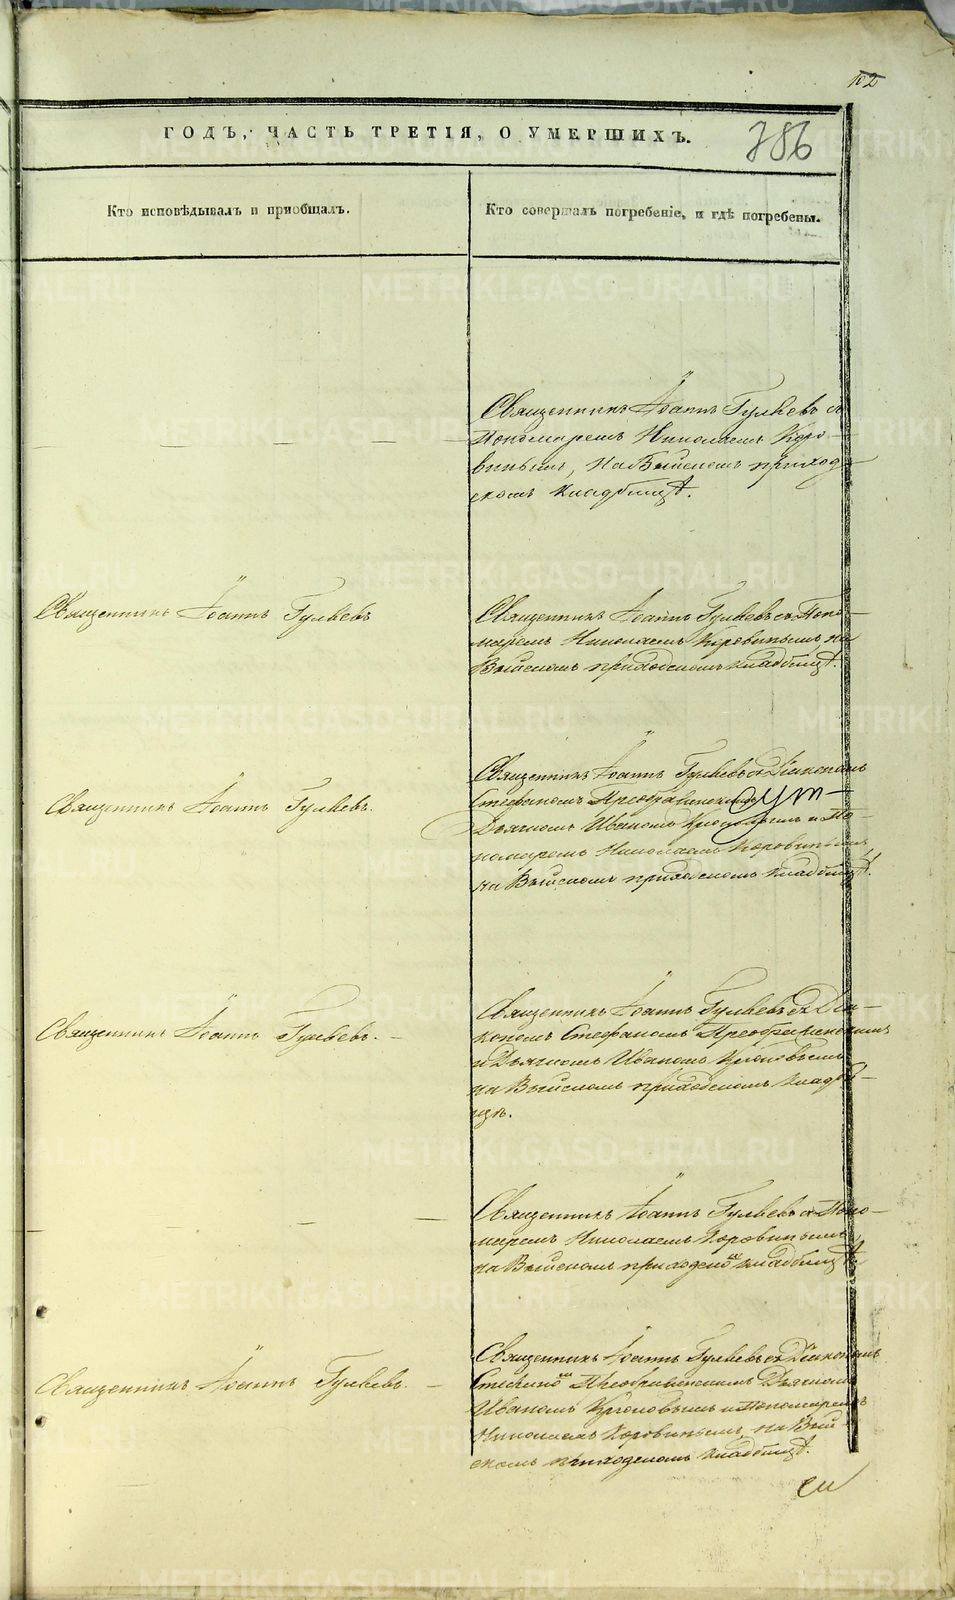 102
ГОДЪ, ЧАСТЬ ТРЕТІЯ, О УМЕРШИХЪ.
786
Кто исповѣдывалъ и пріобщалъ.
Кто совершалъ погребеніе, и гдѣ погребены.
Священникъ Іоаннъ Гуляевъ съ
Пономаремъ Николаемъ Коро-
винымъ, на Выйскомъ приход-
скомъ кладбищѣ.
Священникъ Іоаннъ Гуляевъ
Священникъ Іоаннъ Гуляевъ съ Поно-
маремъ Николаемъ Коровинымъ на
Выйскомъ приходскомъ кладбищѣ.
Священникъ Іоаннъ Гуляевъ.
Священникъ Іоаннъ Гуляевъ съ Діакономъ
Стефаномъ Преображенскимъ
Дьячкомъ Иваномъ и По-
номаремъ Николаемъ Коровинымъ
на Выйскомъ приходскомъ кладбищѣ.
Священникъ Іоаннъ Гуляевъ.
Священникъ Іоаннъ Гуляевъ съ Діа-
кономъ Стефаномъ Преображенскимъ
и Дьячкомъ Иваномъ
на Выйскомъ приходскомъ кладби-
щѣ.
Священникъ Іоаннъ Гуляевъ съ Поно-
маремъ Николаемъ Коровинымъ
на Выйскомъ приходскомъ кладбищѣ
Священникъ Іоаннъ Гуляевъ.
Священникъ Іоаннъ Гуляевъ съ Діакономъ
Преображенскимъ Дьячкомъ
Иваномъ и Пономаремъ
Николаемъ Коровинымъ, на Вый-
скомъ приходскомъ кладбищѣ.
METRIKI.GASO-URAL.RU